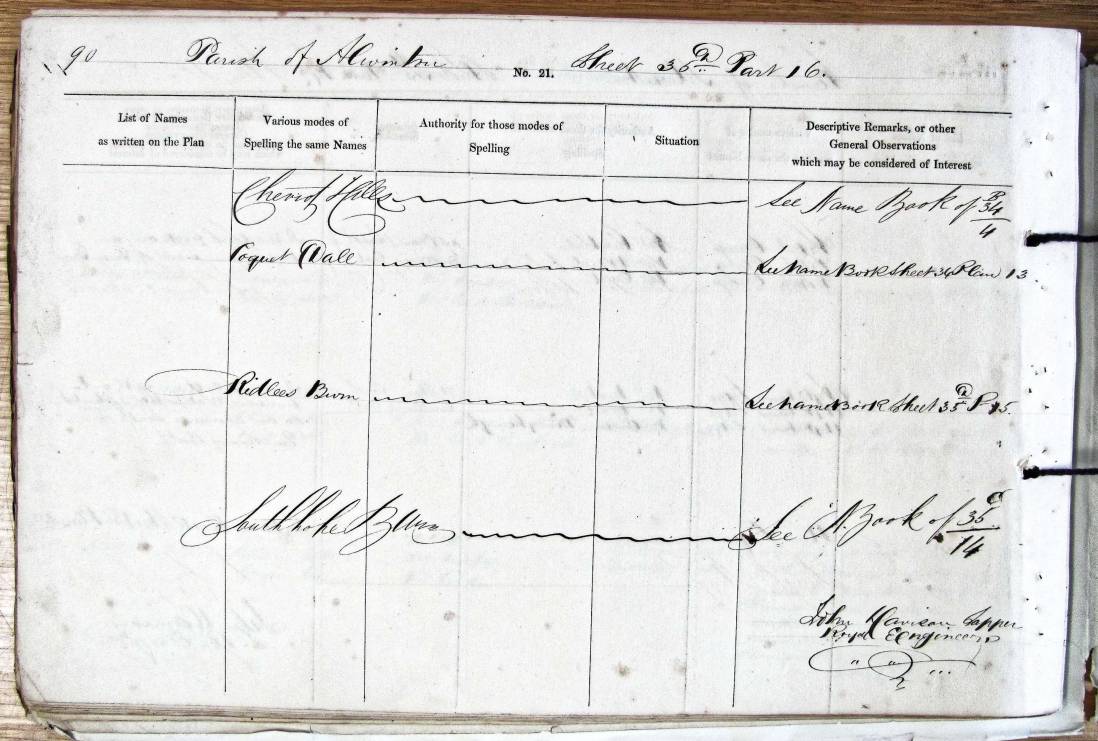 90 Parish of Alwinton No. 21. Sheet 35 a Part 16.
List of Names
as written on the Plan
Various modes of
Spelling the same Names
Authority for those modes of
Spelling
Situation
Descriptive Remarks, or other
General Observations
which may be considered of Interest
Cheviot Hills See Name Book of 34 B/4
Coquet Dale See name Book Sheet 34 Plan 13
Ridlees Burn See name Book Sheet 35 a P 15.
Southhope Burn See N. Book of 35 c/14
John Davison Sapper
Royal Engineers